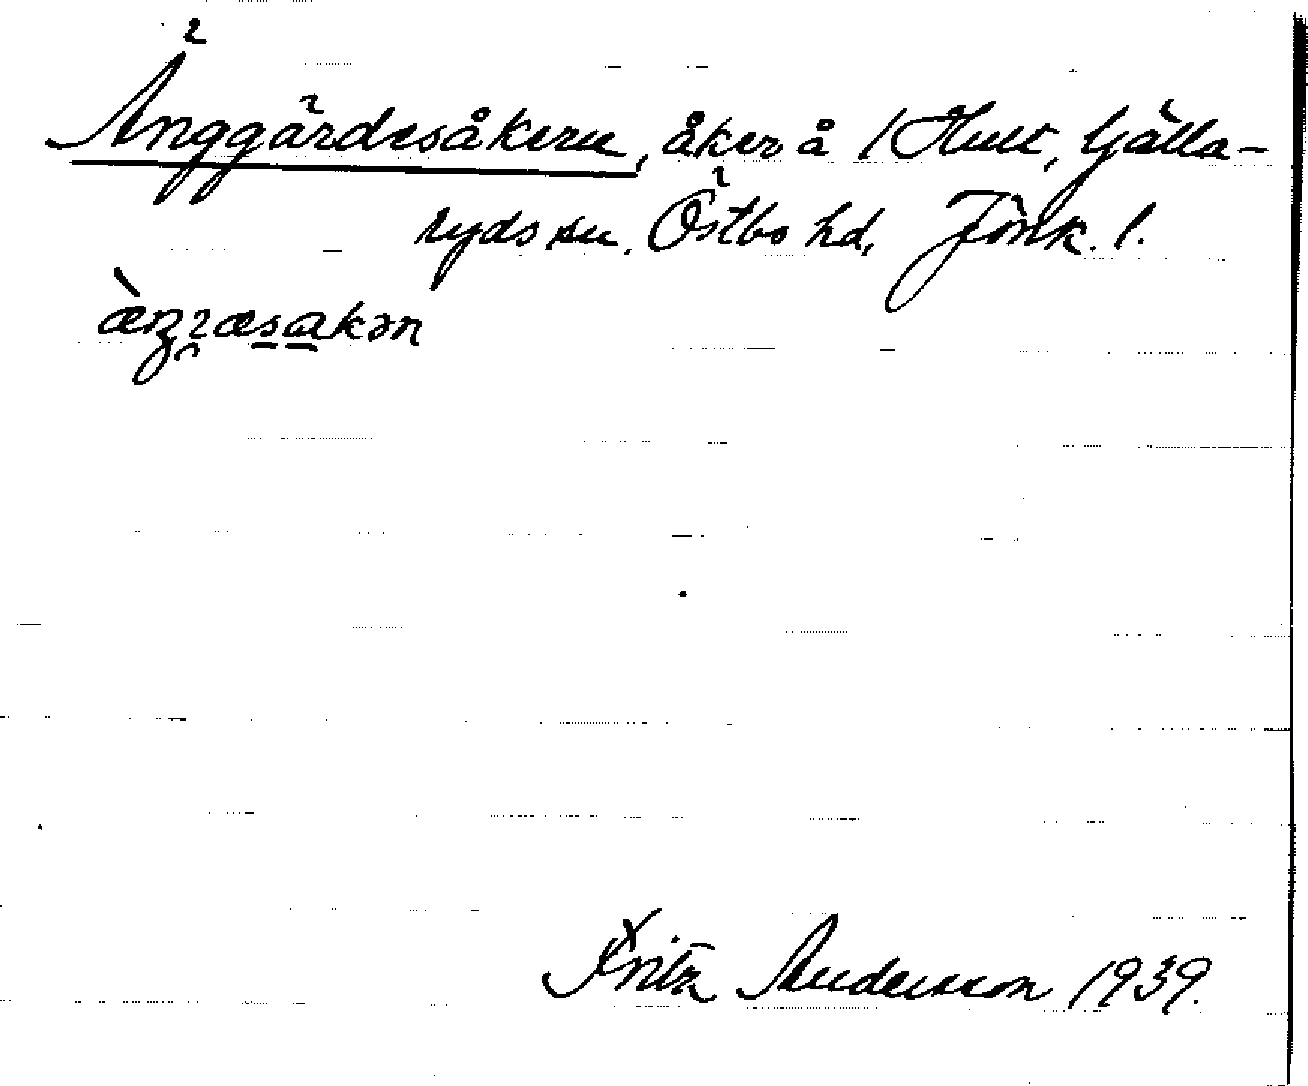 Änggärdesåkern, åker å /Hult, Gälla-
ryds sn, Östbo hd, Jönk. l.
Fritz Andersson 1939.